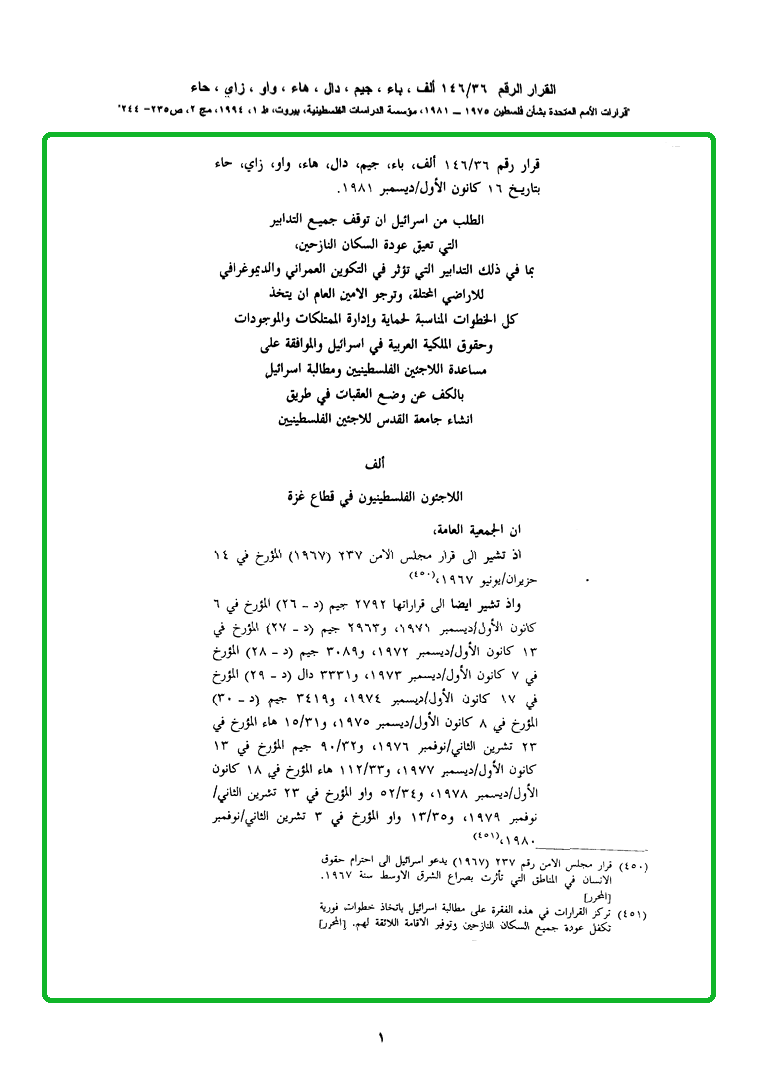 القرار الرقم ١٤٦/٣٦ ألف ، باء ، جيم ، دال ، هاء ، واو ، زاي ، حاء
"قرارات الأمم المتحدة بشأن فلسطين ١٩٧٥ – ١٩٨١، مؤسسة الدراسات الفلسطينية، بيروت، ط ١، ١٩٩٤، مج ٢، ص٢٣٥- ٢٤٤"
قرار رقم ١٤٦/٣٦ ألف، باء، جيم، دال، هاء، واو، زاي، حاء
بتاريخ ١٦ كانون الأول/ديسمبر ١٩٨١.
الطلب من اسرائيل ان توقف جميع التدابير
التي تعيق عودة السكان النازحين،
بما في ذلك التدابير التي تؤثر في التكوين العمراني والديموغرافي
للاراضي المحتلة، وترجو الامين العام ان يتخذ
كل الخطوات المناسبة لحماية وإدارة الممتلكات والموجودات
وحقوق الملكية العربية في اسرائيل والموافقة على
مساعدة اللاجئين الفلسطينيين ومطالبة اسرائيل
بالكف عن وضع العقبات في طريق
انشاء جامعة القدس للاجئين الفلسطينيين
ألف
اللاجئون الفلسطينيون في قطاع غزة
ان الجمعية العامة،
اذ تشير الى قرار مجلس الامن ٢٣٧ (١٩٦٧) المؤرخ في ١٤
حزيران/يونيو ١٩٦٧،(٤٥٠)
واذ تشير ايضا الى قراراتها ٢٧٩٢ جيم (د – ٢٦) المؤرخ في ٦
كانون الأول/ديسمبر ١٩٧١، و٢٩٦٣ جيم (د – ٢٧) المؤرخ في
١٣ كانون الأول/ديسمبر ١٩٧٢، و٣٠٨٩ جيم (د – ٢٨) المؤرخ
في ٧ كانون الأول/ديسمبر ١٩٧٣، و٣٣٣١ دال (د – ٢٩) المؤرخ
في ١٧ كانون الأول/ديسمبر ١٩٧٤، و٣٤١٩ جيم (د – ٣٠)
المؤرخ في ٨ كانون الأول/ديسمبر ١٩٧٥، و١٥/٣١ هاء المؤرخ في
٢٣ تشرين الثاني/نوفمبر ١٩٧٦، و٩٠/٣٢ جيم المؤرخ في ١٣
كانون الأول/ديسمبر ١٩٧٧، و١١٢/٣٣ هاء المؤرخ في ١٨ كانون
الأول/ديسمبر ١٩٧٨، و٥٢/٣٤ واو المؤرخ في ٢٣ تشرين الثاني/
نوفمبر ١٩٧٩، و١٣/٣٥ واو المؤرخ في ٣ تشرين الثاني/نوفمبر
١٩٨٠،(٤٥١)
(٤٥٠) قرار مجلس الامن رقم ٢٣٧ (١٩٦٧) يدعو اسرائيل الى احترام حقوق
الانسان في المناطق التي تأثرت بصراع الشرق الاوسط سنة ١٩٦٧.
[المحرر]
(٤٥١) تركز القرارات في هذه الفقرة على مطالبة اسرائيل باتخاذ خطوات فورية
تكفل عودة جميع السكان النازحين وتوفير الاقامة اللائقة لهم. [المحرر]
١